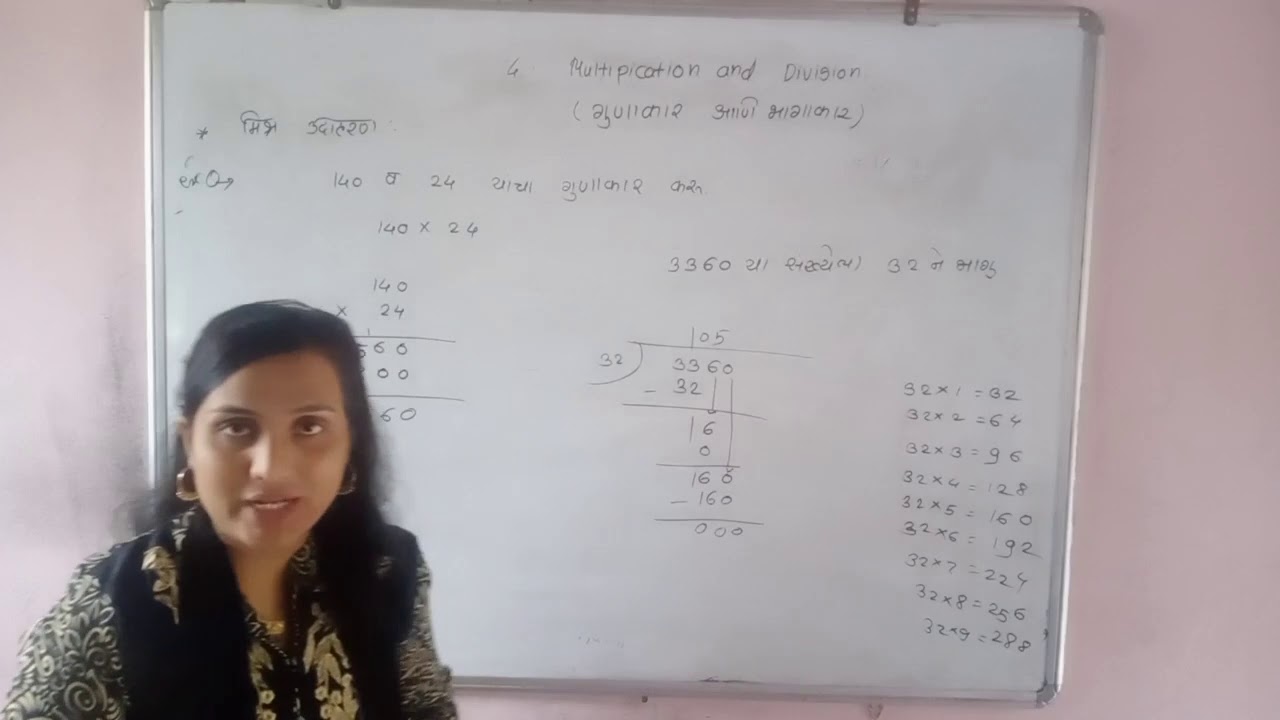 4. Multipication and Division
(गुणाकार आणि भागाकार)
* मिश्र उदाहरण :
140 व 24 याचा गुणाकार करू.
140 × 24
140
× 24
560
00
60
3360 या संख्येला 32 ने भागू
105
32 3360
- 32
16
0
160
- 160
000
32×1=32
32×2=64
32×3=96
32×4=128
32×5=160
32×6=192
32×7=224
32×8=256
32×9=288